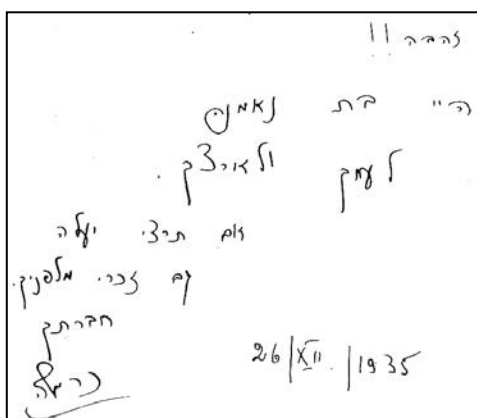 זהבה !!
היי בת נאמנה
לעמך ולארצך.
ואם תרצי יעלה
גם זכרי מלפניך.
חברתך
26/XII./1935